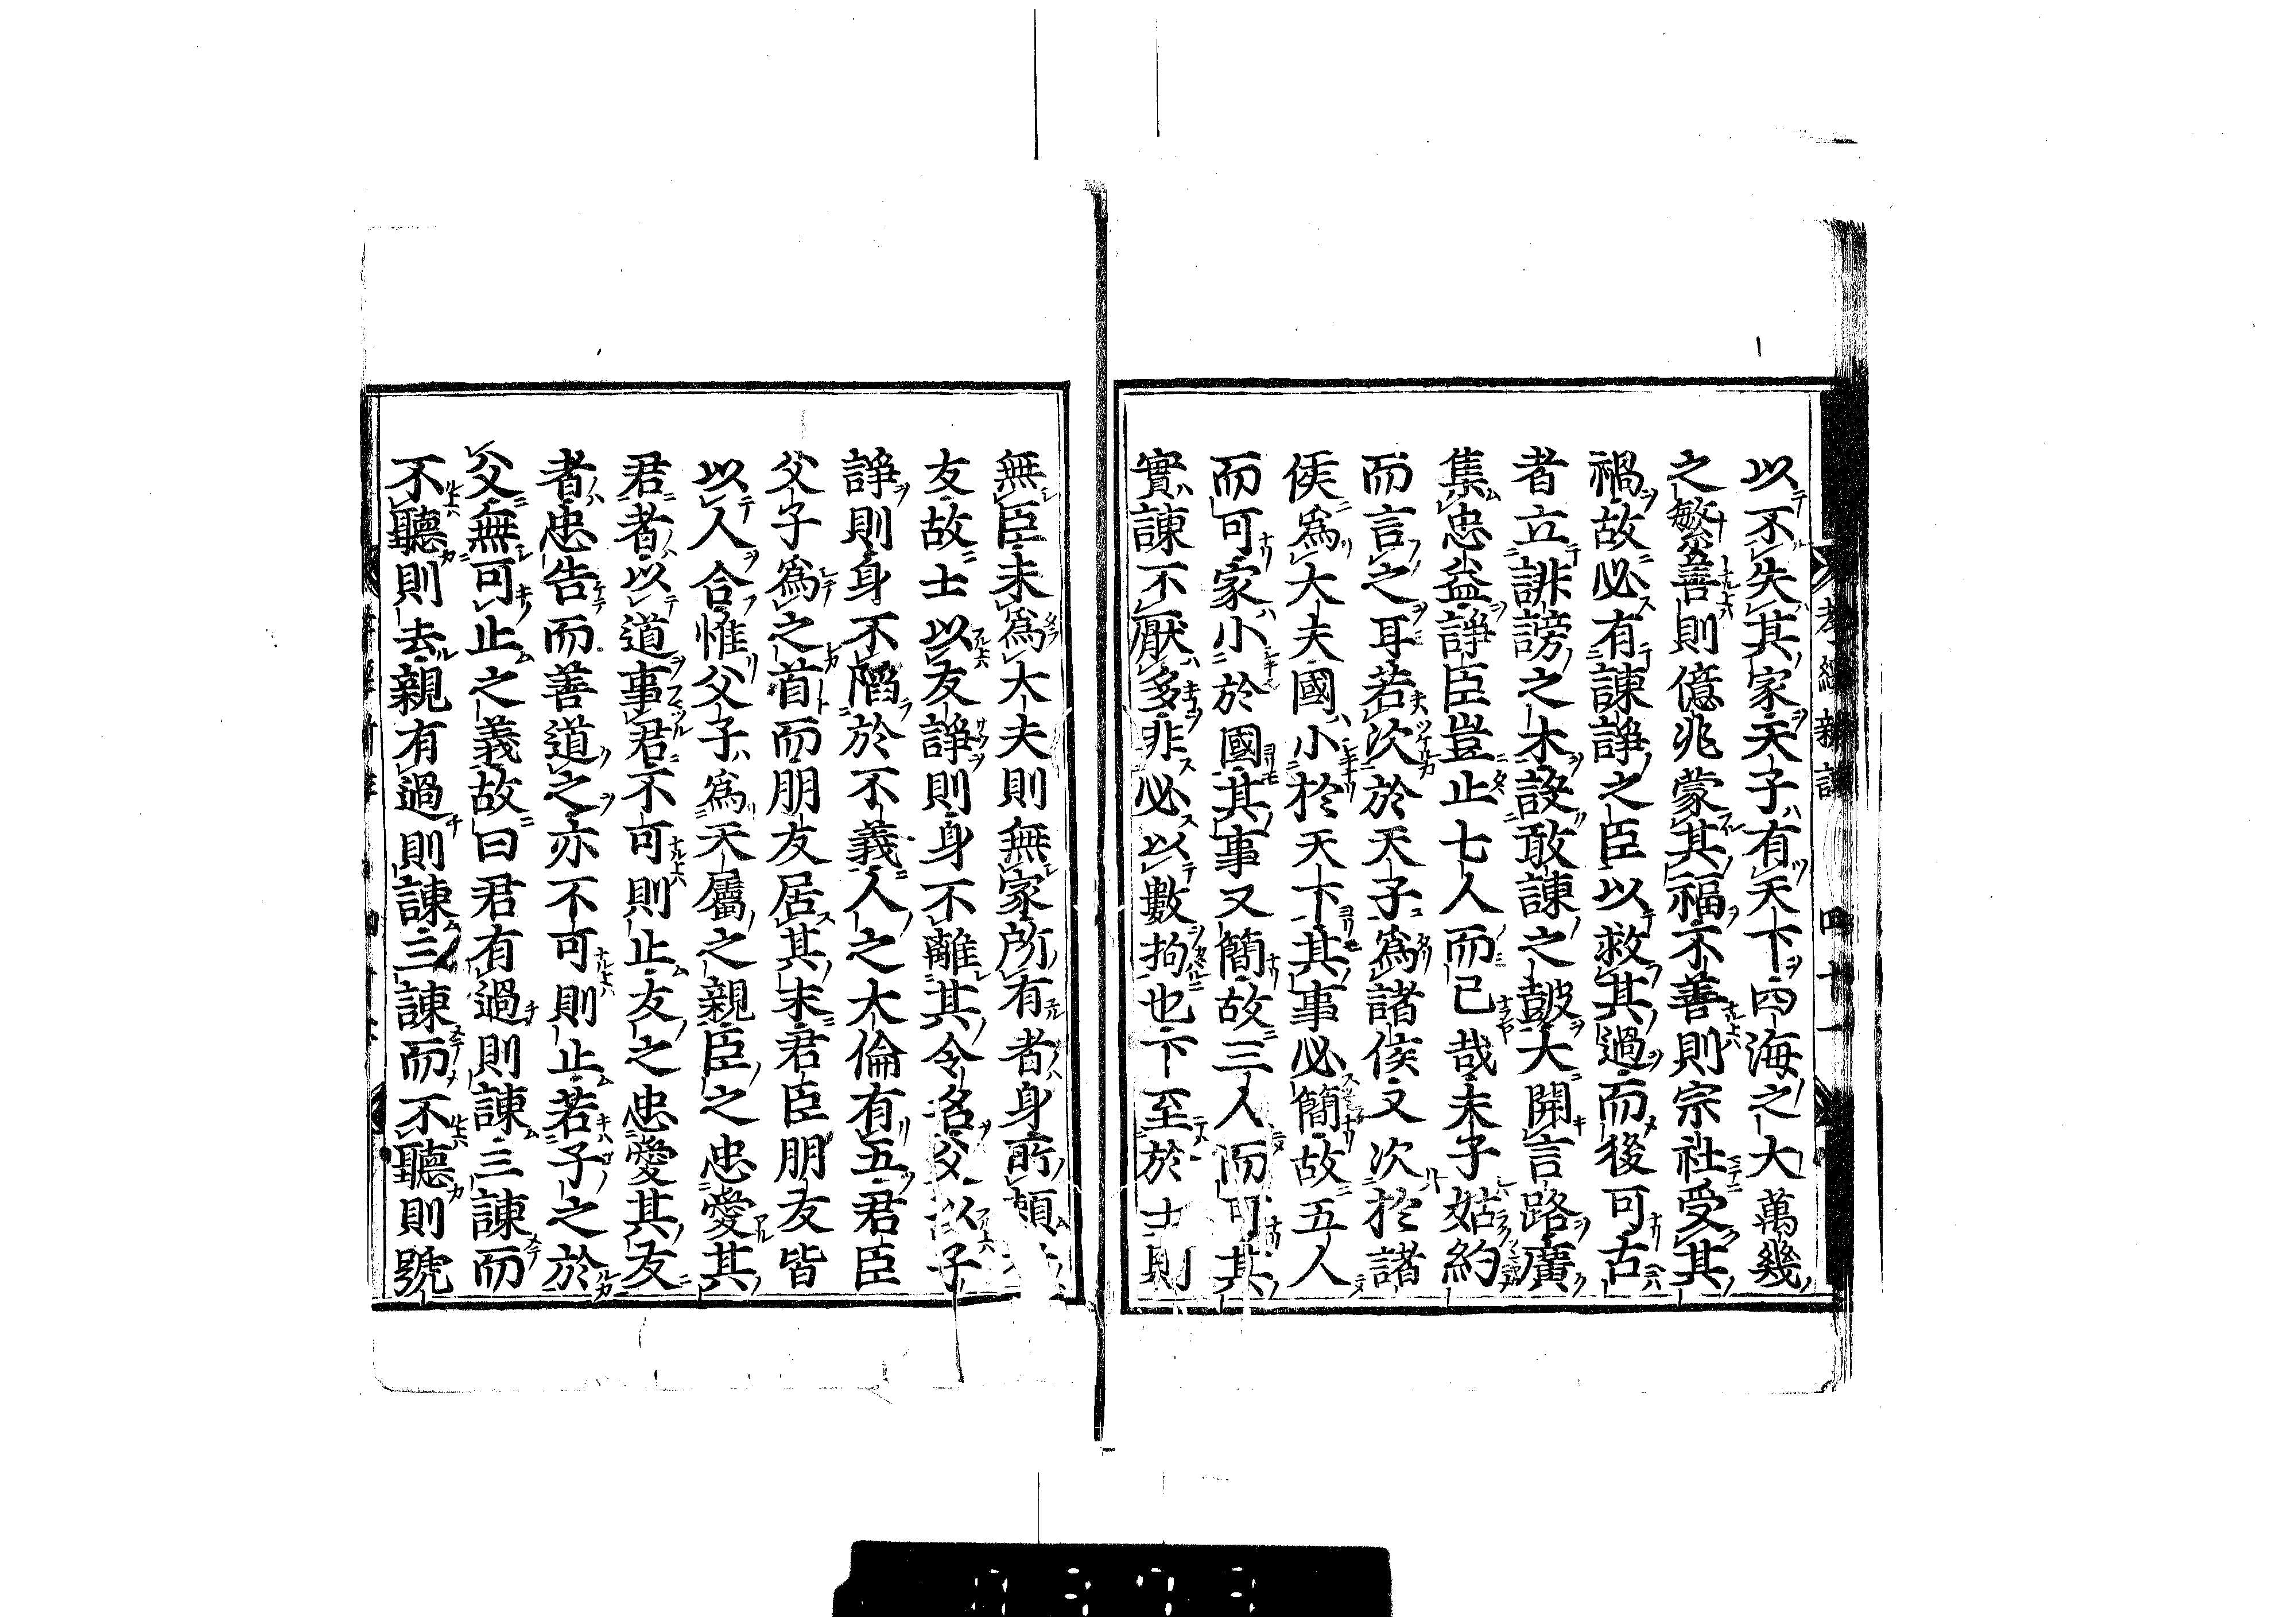 以不失其家天子有天下四海之大萬幾
之繁善則億兆蒙其福不善則宗社受其
禍故必有諫諍之臣以救其過而後可古
者立誹謗之木設敢諫之鼓大開言路廣
集忠益諍臣豈止七人而已哉夫子姑約
而言之耳若次於天子爲諸侯又次於諸
侯爲大夫國小於天下其事必簡故五人
而可家小於國其事又簡故三人而可其
實諫不厭多非必以數拘也下至於士則
無臣未爲大夫則無家所有者身所賴
友故士以友諍則身不離其令名父以子
諍則身不陷於不義人之大倫有五君臣
父子爲之首而朋友居其末君臣朋友皆
以人合惟父子爲天屬之親臣之忠愛其
君者以道事君不可則止友之忠愛其友
者忠告而善道之亦不可則止若子之於
父無可止之義故曰君有過則諫三諫而
不聽則去親有過則諫三諫而不聽則號